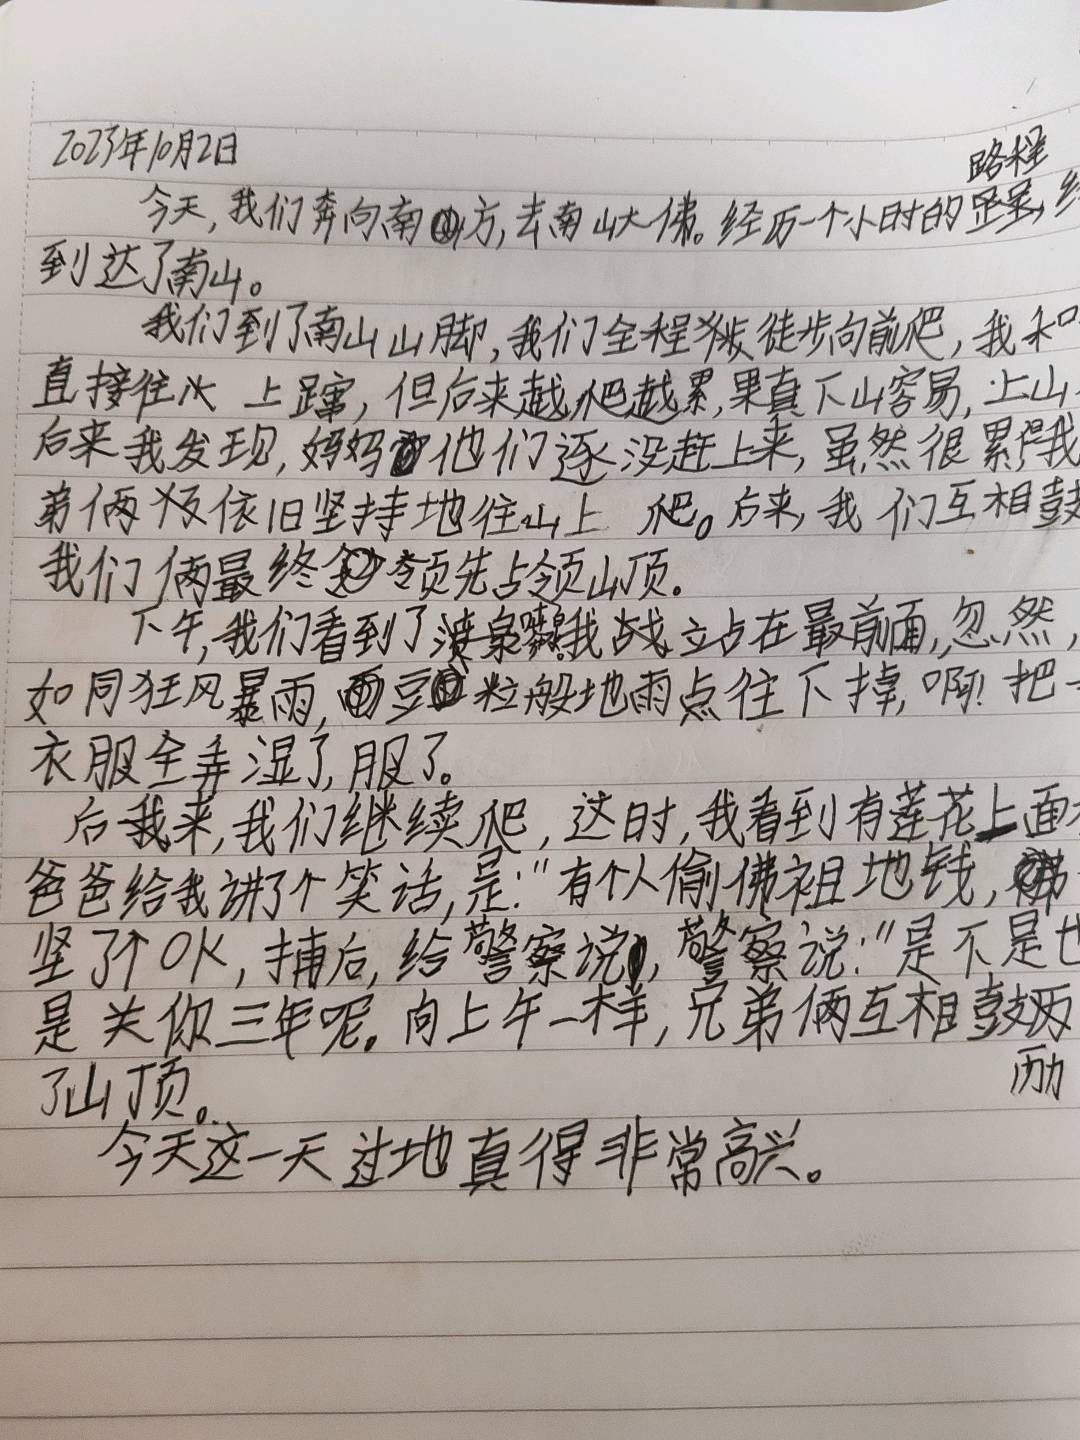 2023年10月2日
路程
今天,我们奔向南方,去南山大佛。经历一个小时的
到达了南山。
我们到了南山山脚,我们全程徒步向前爬,我和
直接往上蹿,但后来越爬越累,果真下山容易,上山
后来我发现,妈妈他们逐没赶上来,虽然很累,我
弟俩依旧坚持地往山上爬。后来,我们互相鼓
我们俩最终领先占领山顶。
下午,我们看到了喷泉,我战立占在最前面,忽然,
如同狂风暴雨,豆粒般地雨点往下掉,啊!把
衣服全弄湿了,服了。
后来,我们继续爬,这时,我看到有莲花上面
爸爸给我讲了个笑话,是:"有个人偷佛祖地钱,佛
坚了个OK,捕后,给警察说,警察说:"是不是
是关你三年呢。向上午一样,兄弟俩互相鼓历
励
了山顶。
今天这一天过地真得非常高兴。